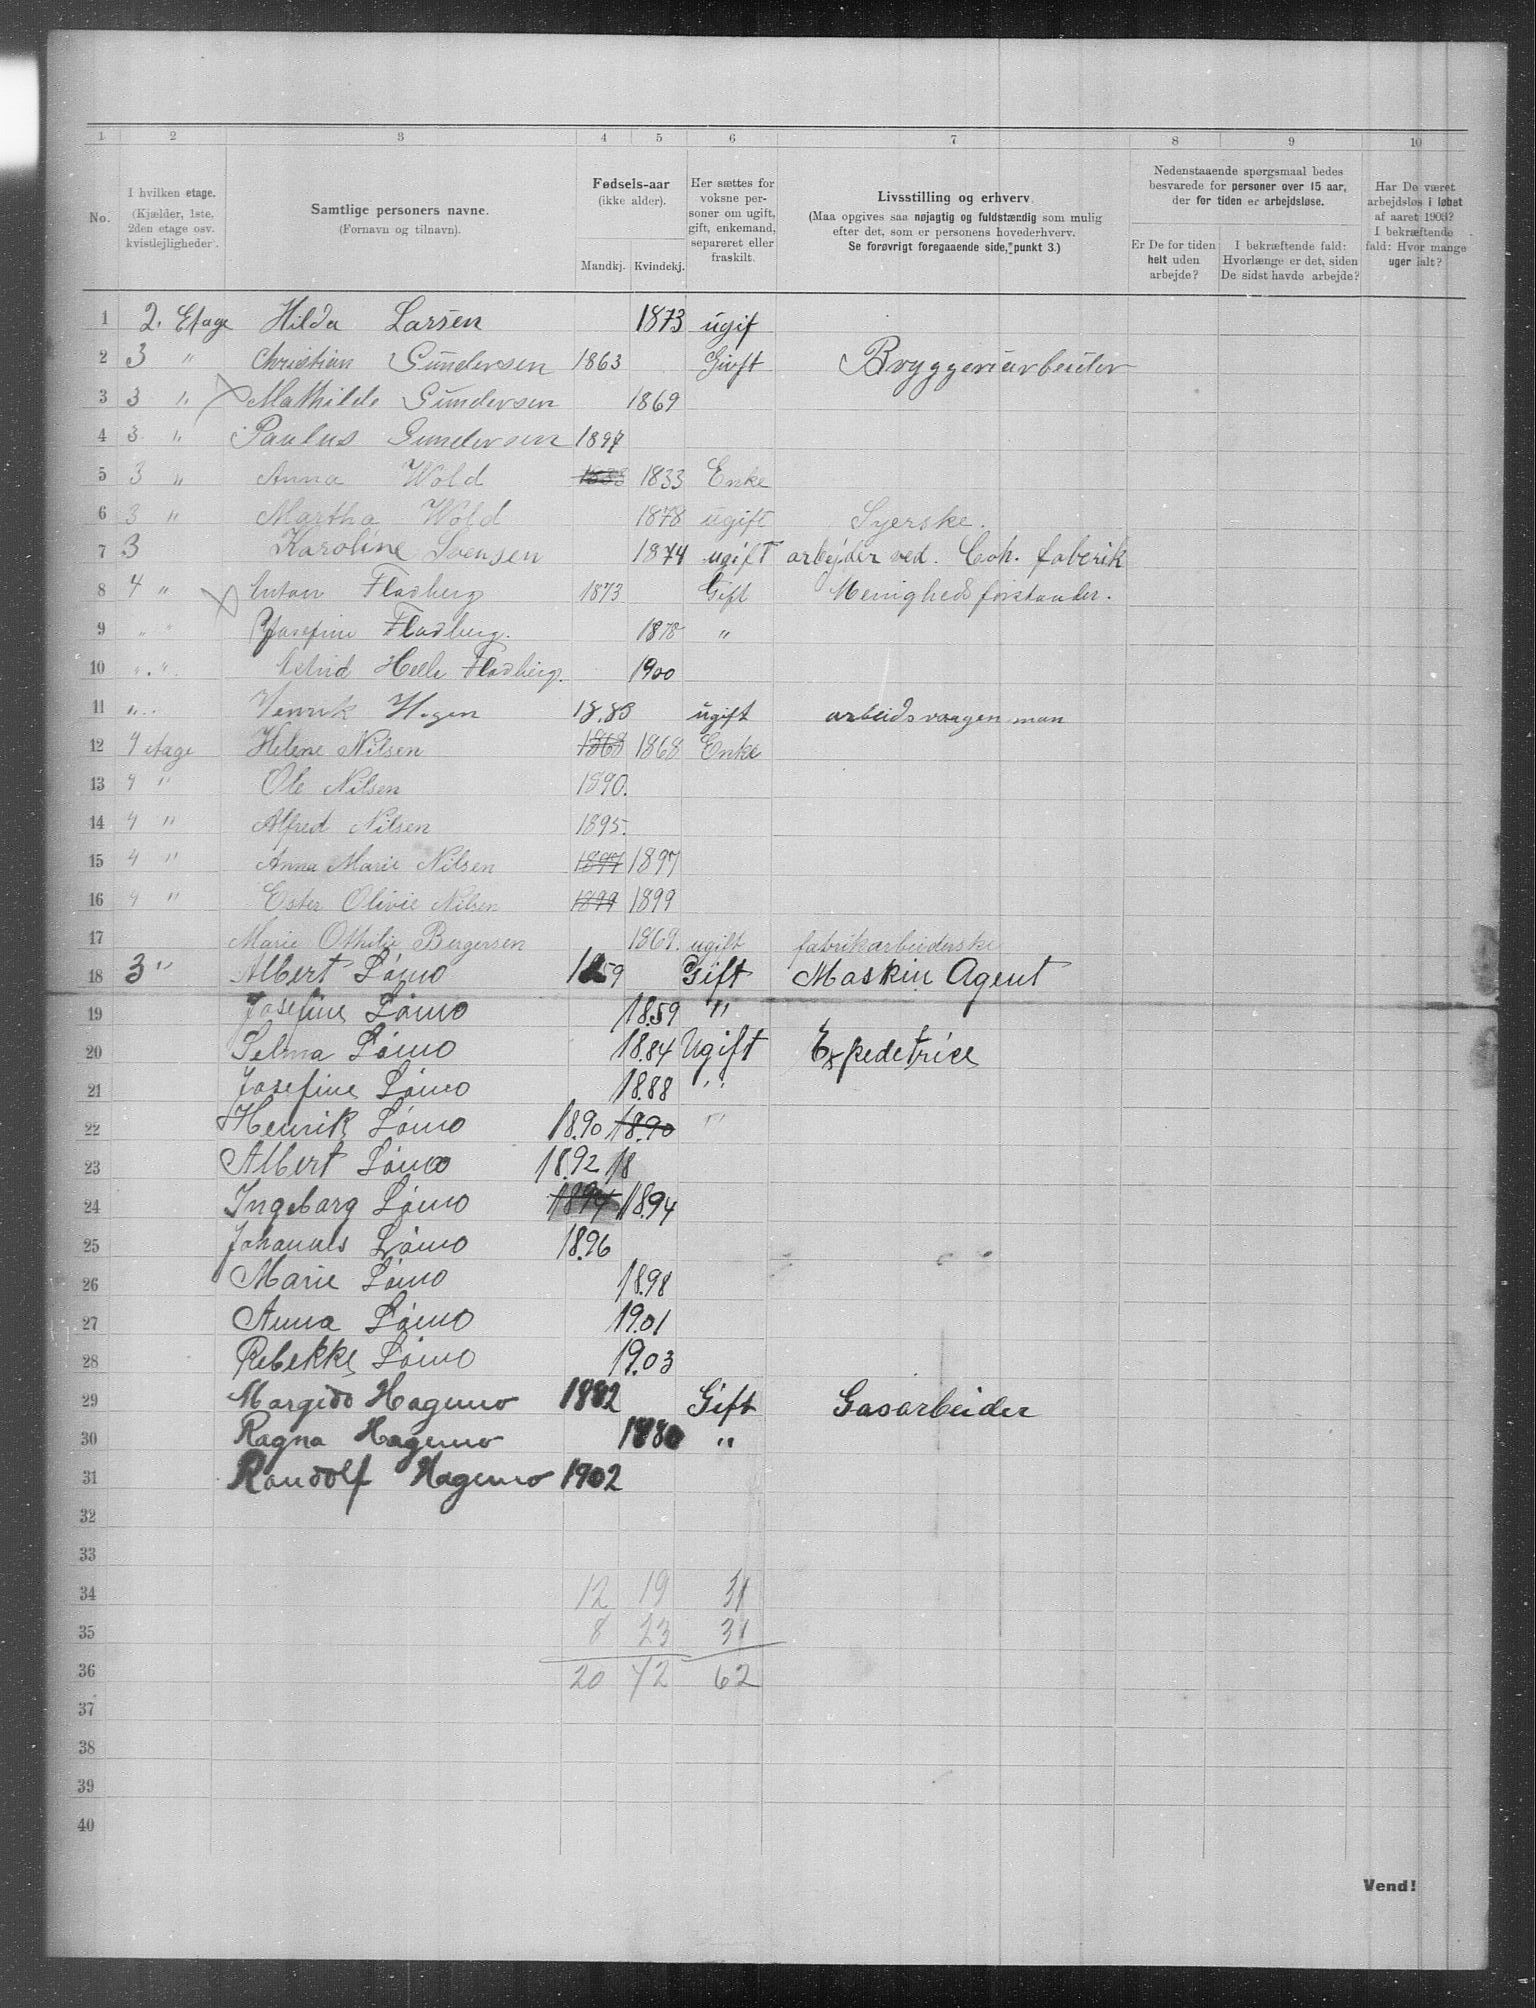 1 2 3 4 5 6 7 8 9 10
No.
I hvilken etage.
(Kjælder, 1ste,
2den etage osv.
kvistlejligheder).
Samtlige personers navne.
(Fornavn og tilnavn).
Fødsels-aar
(ikke alder).
Mandkj. Kvindekj.
Her sættes for
voksne per-
soner om ugift,
gift, enkemand,
separeret eller
fraskilt.
Livsstilling og erhverv.
(Maa opgives saa nøjagtig og fuldstændig som mulig
efter det, som er personens hovederhverv.
Se forøvrigt foregaaende side, punkt 3.)
Nedenstaaende spørgsmaal bedes
besvarede for personer over 15 aar,
der for tiden er arbejdsløse.
Er De for tiden
helt uden
arbejde?
I bekræftende fald:
Hvorlænge er det, siden
De sidst havde arbejde?
Har De været
arbejdsløs i løbet
af aaret 1903?
I bekræftende
fald: Hvor mange
uger ialt?
1 2. Etage Hilda Larsen 1873 ugif
2 3 " Christian Gundersen 1863 Givft Bryggeriarbeider
3 3 " Mathilde Gundersen 1869
4 3 " Paulus Gundersen 1897
5 3 " Anna Wold 1833 1833 Enke
6 3 " Martha Wold 1878 ugift Syerske.
7 3 Karoline Svensen 1874 ugift arbejder ved. Coh. faberik
8 4 " Anton Fladberg 1873 Gift Menighedsforstander.
9 " " Josefine Fladberg. 1878 "
10 " . " Astrid Helle Fladberg. 1900
11 " . Henrik Hagen 18.83 ugift arbeidsvaagen man
12 4 etage Helene Nilsen 1868 1868 Enke
13 4 " Ole Nilsen 1890.
14 4 " Alfred Nilsen 1895.
15 4 " Anna Marie Nilsen 1897 1897
16 4 " Ester Olivie Nilsen 1899 1899
17 Marie Othilie Bergersen 1869. ugift fabrikarbeiderske
18 3 " Albert Lømo 1859 Gift Maskin Agent
19 Josefine Lømo 18.59 "
20 Selma Lømo 18.84 Ugift Expedetrice
21 Josefine Lømo 18.88 "
22 Henrik Lømo 18.90 18.90 "
23 Albert Lømo 18.92 18
24 Ingeborg Lømo 1894 18.94
25 Johannes Lømo 18.96
26 Marie Lømo 18.98
27 Anna Lømo 19.01
28 Rebekke Lømo 19.03
29 Margido Hagemo 1882 Gift Gasarbeider
30 Ragna Hagemo 1880 "
31 Randolf Hagemo 1902
32
33
34 12 19 31
35 8 23 31
36 20 42 62
37
38
39
40
Vend!